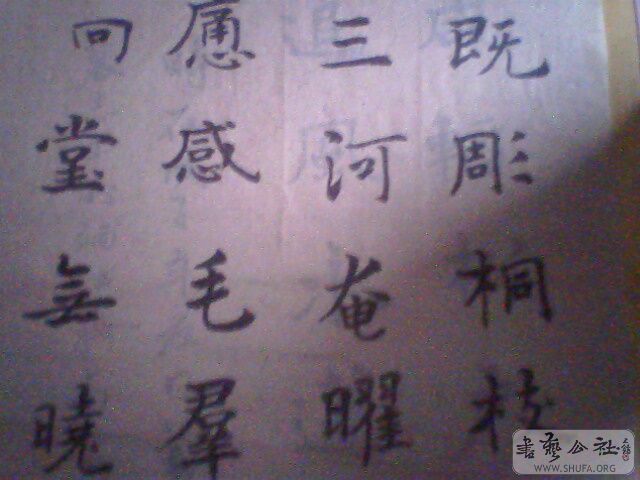 既彫桐枝
三河奄曜
感毛羣
堂無曉
書藝公社
WWW.SHUFA.ORG